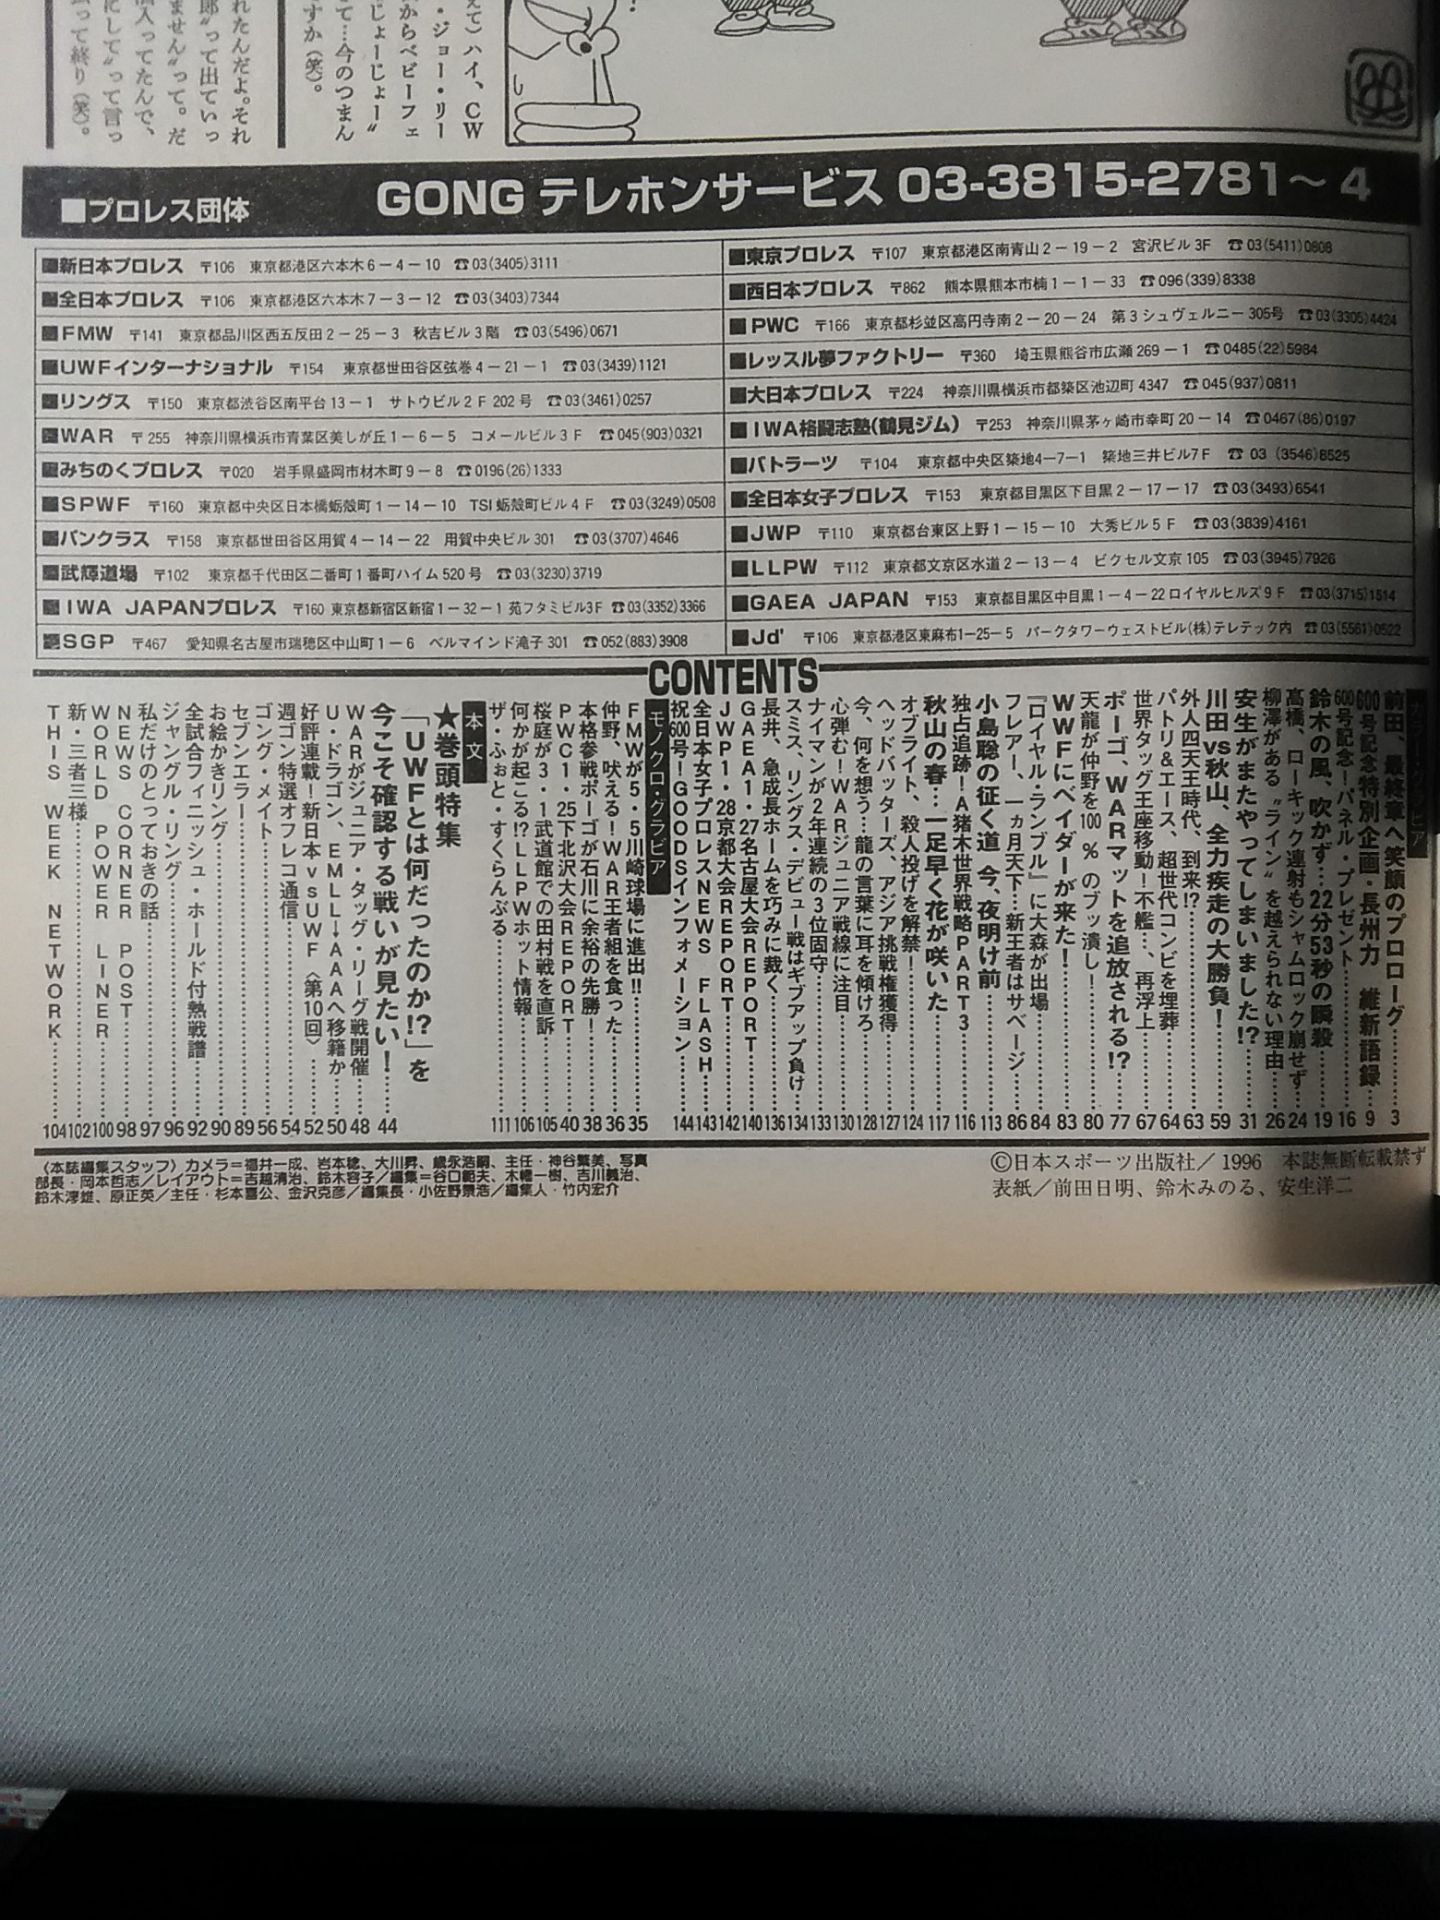 えて）ハイ、CW
・ジョー・リー
からベビーフェ
じょーじょー〟
て…今のつまん
すか（笑）。
れたんだよ。それ
郎〟って出ていっ
ません〟って。だ
入ってたんで、
にして〟って言っ
って終り（笑）。
■プロレス団体 GONG テレホンサービス 03-3815-2781〜4
■新日本プロレス 〒106 東京都港区六本木6－4－10 ☎03(3405)3111
■全日本プロレス 〒106 東京都港区六本木7－3－12 ☎03(3403)7344
■FMW 〒141 東京都品川区西五反田2－25－3 秋吉ビル3階 ☎03(5496)0671
■UWFインターナショナル 〒154 東京都世田谷区弦巻4－21－1 ☎03(3439)1121
■リングス 〒150 東京都渋谷区南平台13－1 サトウビル2F 202号 ☎03(3461)0257
■WAR 〒255 神奈川県横浜市青葉区美しが丘1－6－5 コメールビル3F ☎045(903)0321
■みちのくプロレス 〒020 岩手県盛岡市材木町9－8 ☎0196(26)1333
■SPWF 〒160 東京都中央区日本橋蛎殻町1－14－10 TSI蛎殻町ビル4F ☎03(3249)0508
■パンクラス 〒158 東京都世田谷区用賀4－14－22 用賀中央ビル301 ☎03(3707)4646
■武輝道場 〒102 東京都千代田区二番町1番町ハイム520号 ☎03(3230)3719
■IWA JAPANプロレス 〒160 東京都新宿区新宿1－32－1 苑フタミビル3F ☎03(3352)3366
■SGP 〒467 愛知県名古屋市瑞穂区中山町1－6 ベルマインド滝子301 ☎052(883)3908
■東京プロレス 〒107 東京都港区南青山2－19－2 宮沢ビル3F ☎03(5411)0808
■西日本プロレス 〒862 熊本県熊本市楠1－1－33 ☎096(339)8338
■PWC 〒166 東京都杉並区高円寺南2－20－24 第3シュヴェルニー305号 ☎03(3305)4424
■レッスル夢ファクトリー 〒360 埼玉県熊谷市広瀬269－1 ☎0485(22)5984
■大日本プロレス 〒224 神奈川県横浜市都築区池辺町4347 ☎045(937)0811
■IWA格闘志塾(鶴見ジム) 〒253 神奈川県茅ヶ崎市幸町20－14 ☎0467(86)0197
■バトラーツ 〒104 東京都中央区築地4－7－1 築地三井ビル7F ☎03 (3546)8525
■全日本女子プロレス 〒153 東京都目黒区下目黒2－17－17 ☎03(3493)6541
■JWP 〒110 東京都台東区上野1－15－10 大秀ビル5F ☎03(3839)4161
■LLPW 〒112 東京都文京区水道2－13－4 ビクセル文京105 ☎03(3945)7926
■GAEA JAPAN 〒153 東京都目黒区中目黒1－4－22 ロイヤルヒルズ9F ☎03(3715)1514
■Jd' 〒106 東京都港区東麻布1－25－5 パークタワーウェストビル(株)テレテック内 ☎03(5561)0522
CONTENTS
カラー・グラビア
前田、最終章へ笑顔のプロローグ……3
600号記念特別企画・長州力 維新語録……9
600号記念！パネル・プレゼント……16
鈴木の風、吹かず…22分53秒の瞬殺……19
高橋、ローキック連射もシャムロック崩せず……24
柳澤がある〝ライン〟を越えられない理由……26
安生がまたやってしまいました!?……31
川田vs秋山、全力疾走の大勝負！……59
外人四天王時代、到来!?……63
パトリ＆エース、超世代コンビを埋葬……64
世界タッグ王座移動！不艦…、再浮上……67
ポーゴ、WARマットを追放される!?……77
天龍が仲野を100％のブッ潰し！……80
WWFにベイダーが来た！……83
『ロイヤル・ランブル』に大森が出場……84
フレアー、一ヵ月天下…新王者はサベージ……86
小島聡の征く道 今、夜明け前……113
独占追跡！A猪木世界戦略PART3……116
秋山の春…一足早く花が咲いた……117
オブライト、殺人投げを解禁！……124
ヘッドバッターズ、アジア挑戦権獲得……127
今、何を想う…龍の言葉に耳を傾けろ……128
心弾む！WARジュニア戦線に注目……130
ナイマンが2年連続の3位固守……133
スミス、リングス・デビュー戦はギブアップ負け……134
長井、急成長ホームを巧みに裁く……136
GAEA1・27名古屋大会REPORT……140
JWP1・28京都大会REPORT……142
全日本女子プロレスNEWS FLASH……143
祝600号！GOODSインフォメーション……144
モノクロ・グラビア
FMWが5・5川崎球場に進出!!……35
仲野、吠える！WAR王者組を食った……36
本格参戦ポーゴが石川に余裕の先勝！……38
PWC1・25下北沢大会REPORT……40
桜庭が3・1武道館での田村戦を直訴……105
何かが起こる!?LLPWホット情報……106
ザ・ふぉと・すくらんぶる……111
本文
★巻頭特集
「UWFとは何だったのか!?」を
今こそ確認する戦いが見たい！……44
WARがジュニア・タッグ・リーグ戦開催……48
U・ドラゴン、EMLL→AAAへ移籍か……50
好評連載！新日本vsUWF〈第10回〉……52
週ゴン特選オフレコ通信……54
ゴング・メイト……56
セブンエラー……89
お絵かきリング……90
全試合フィニッシュ・ホールド付熱戦譜……92
ジャングル・リング……96
私だけのとっておきの話……97
NEWS CORNER POST……98
WORLD POWER LINER……100
新・三者三様……102
THIS WEEK NETWORK……104
〈本誌編集スタッフ〉カメラ＝福井一成、岩本稔、大川昇、歳永浩嗣、主任・神谷繁美、写真
部長・岡本哲志／レイアウト＝吉越清治、鈴木容子／編集＝谷口範夫、木幡一樹、吉川義治、
鈴木淳雄、原正英／主任・杉本喜公、金沢克彦／編集長・小佐野景浩／編集人・竹内宏介
©日本スポーツ出版社／1996 本誌無断転載禁ず
表紙／前田日明、鈴木みのる、安生洋二